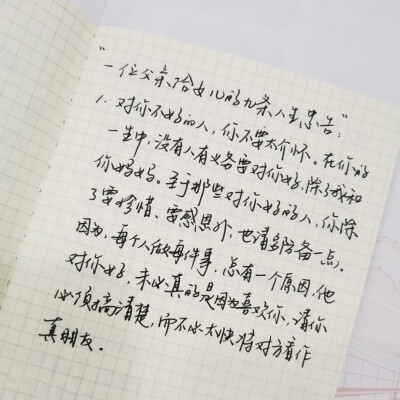 "一位父亲给女儿的九条人生忠告":
1. 对你不好的人，你不要太介怀。在你的
一生中，没有人有义务要对你好，除了我和
你妈妈。至于那些对你好的人，你除
了要珍惜、要感恩外，也请多防备一点。
因为，每个人做每件事，总有一个原因，他
对你好，未必真的是因为喜欢你，请你
必须搞清楚，而不必太快将对方看作
真朋友。